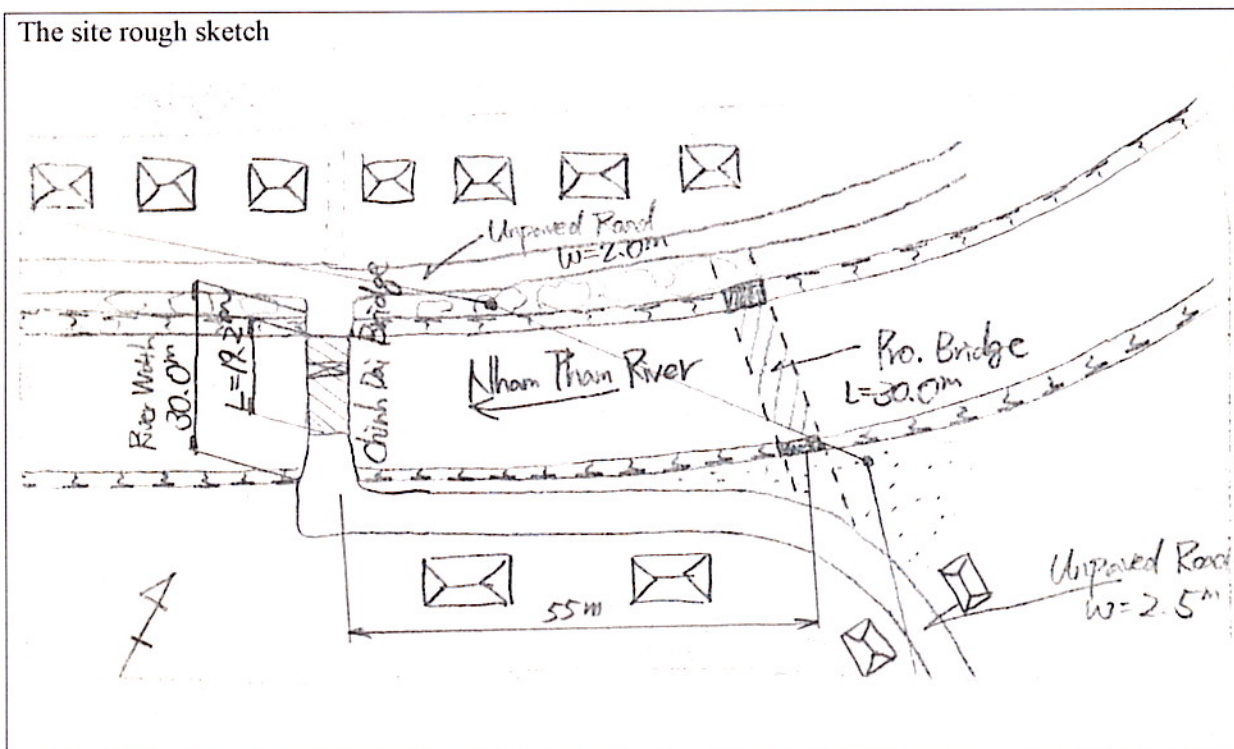 The site rough sketch
Unpaved Road
W=2.0m
River Width
30.0m
L=19.2m
Chinh Dai Bridge
Nham Tham River
Pro. Bridge
L=30.0m
55m
Unpaved Road
W=2.5m